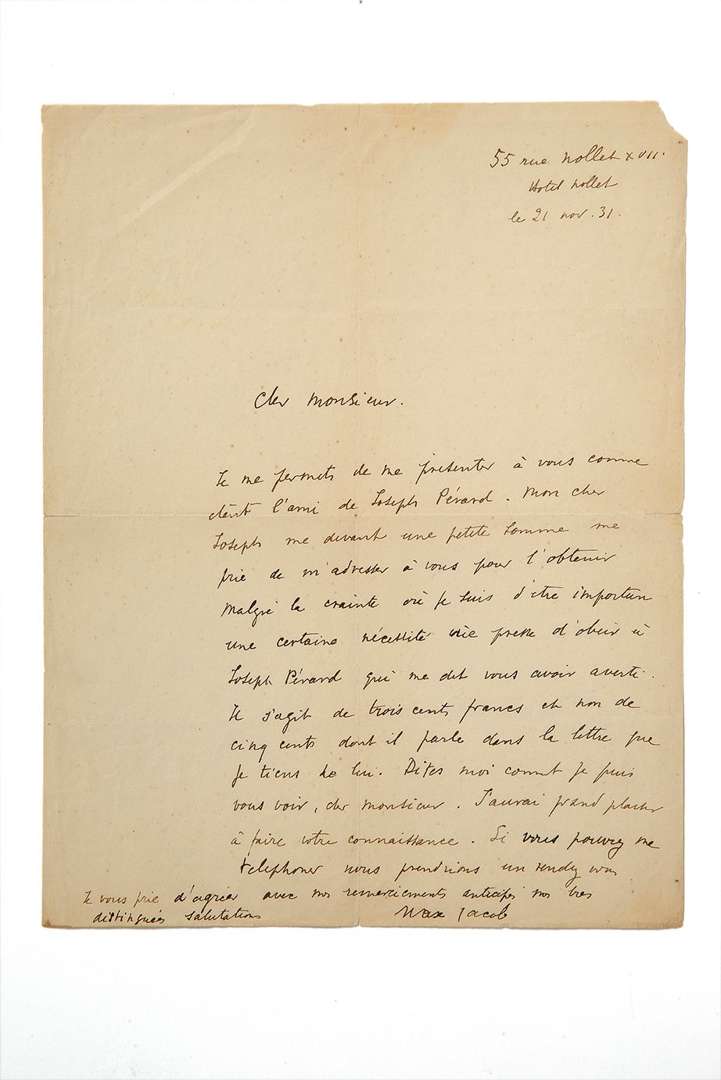 55 rue Nollet XVII.
Hotel Nollet
le 21 nov. 31.
Cher Monsieur.
Je me permets de me présenter à vous comme
étant l'ami de Joseph Pérard. Mon cher
Joseph me devant une petite somme me
prie de m'adresser à vous pour l'obtenir
malgré la crainte où je suis d'être importun
une certaine nécessité me presse d'obéir à
Joseph Pérard qui me dit vous avoir averti.
Il s'agit de trois cents francs et non de
cinq cents dont il parle dans la lettre que
je tiens de lui. Dites moi comt je puis
vous voir, cher Monsieur. J'aurai grand plaisir
à faire votre connaissance. Si vous pouvez me
telephoner nous prendrions un rendez vous
Je vous prie d'agréer avec mes remerciements anticipés mes très
distinguées salutations
Max Jacob